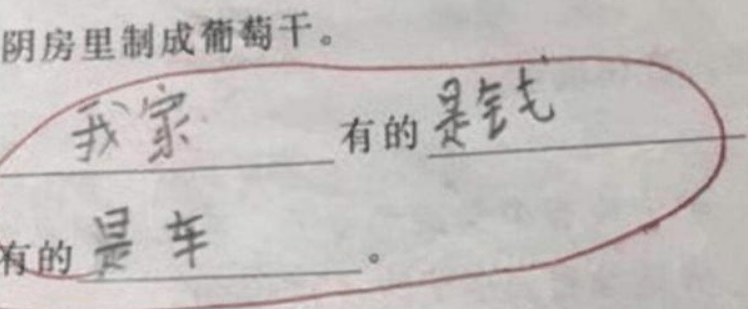 阴房里制成葡萄干。
我家有的是钱
有的是车。